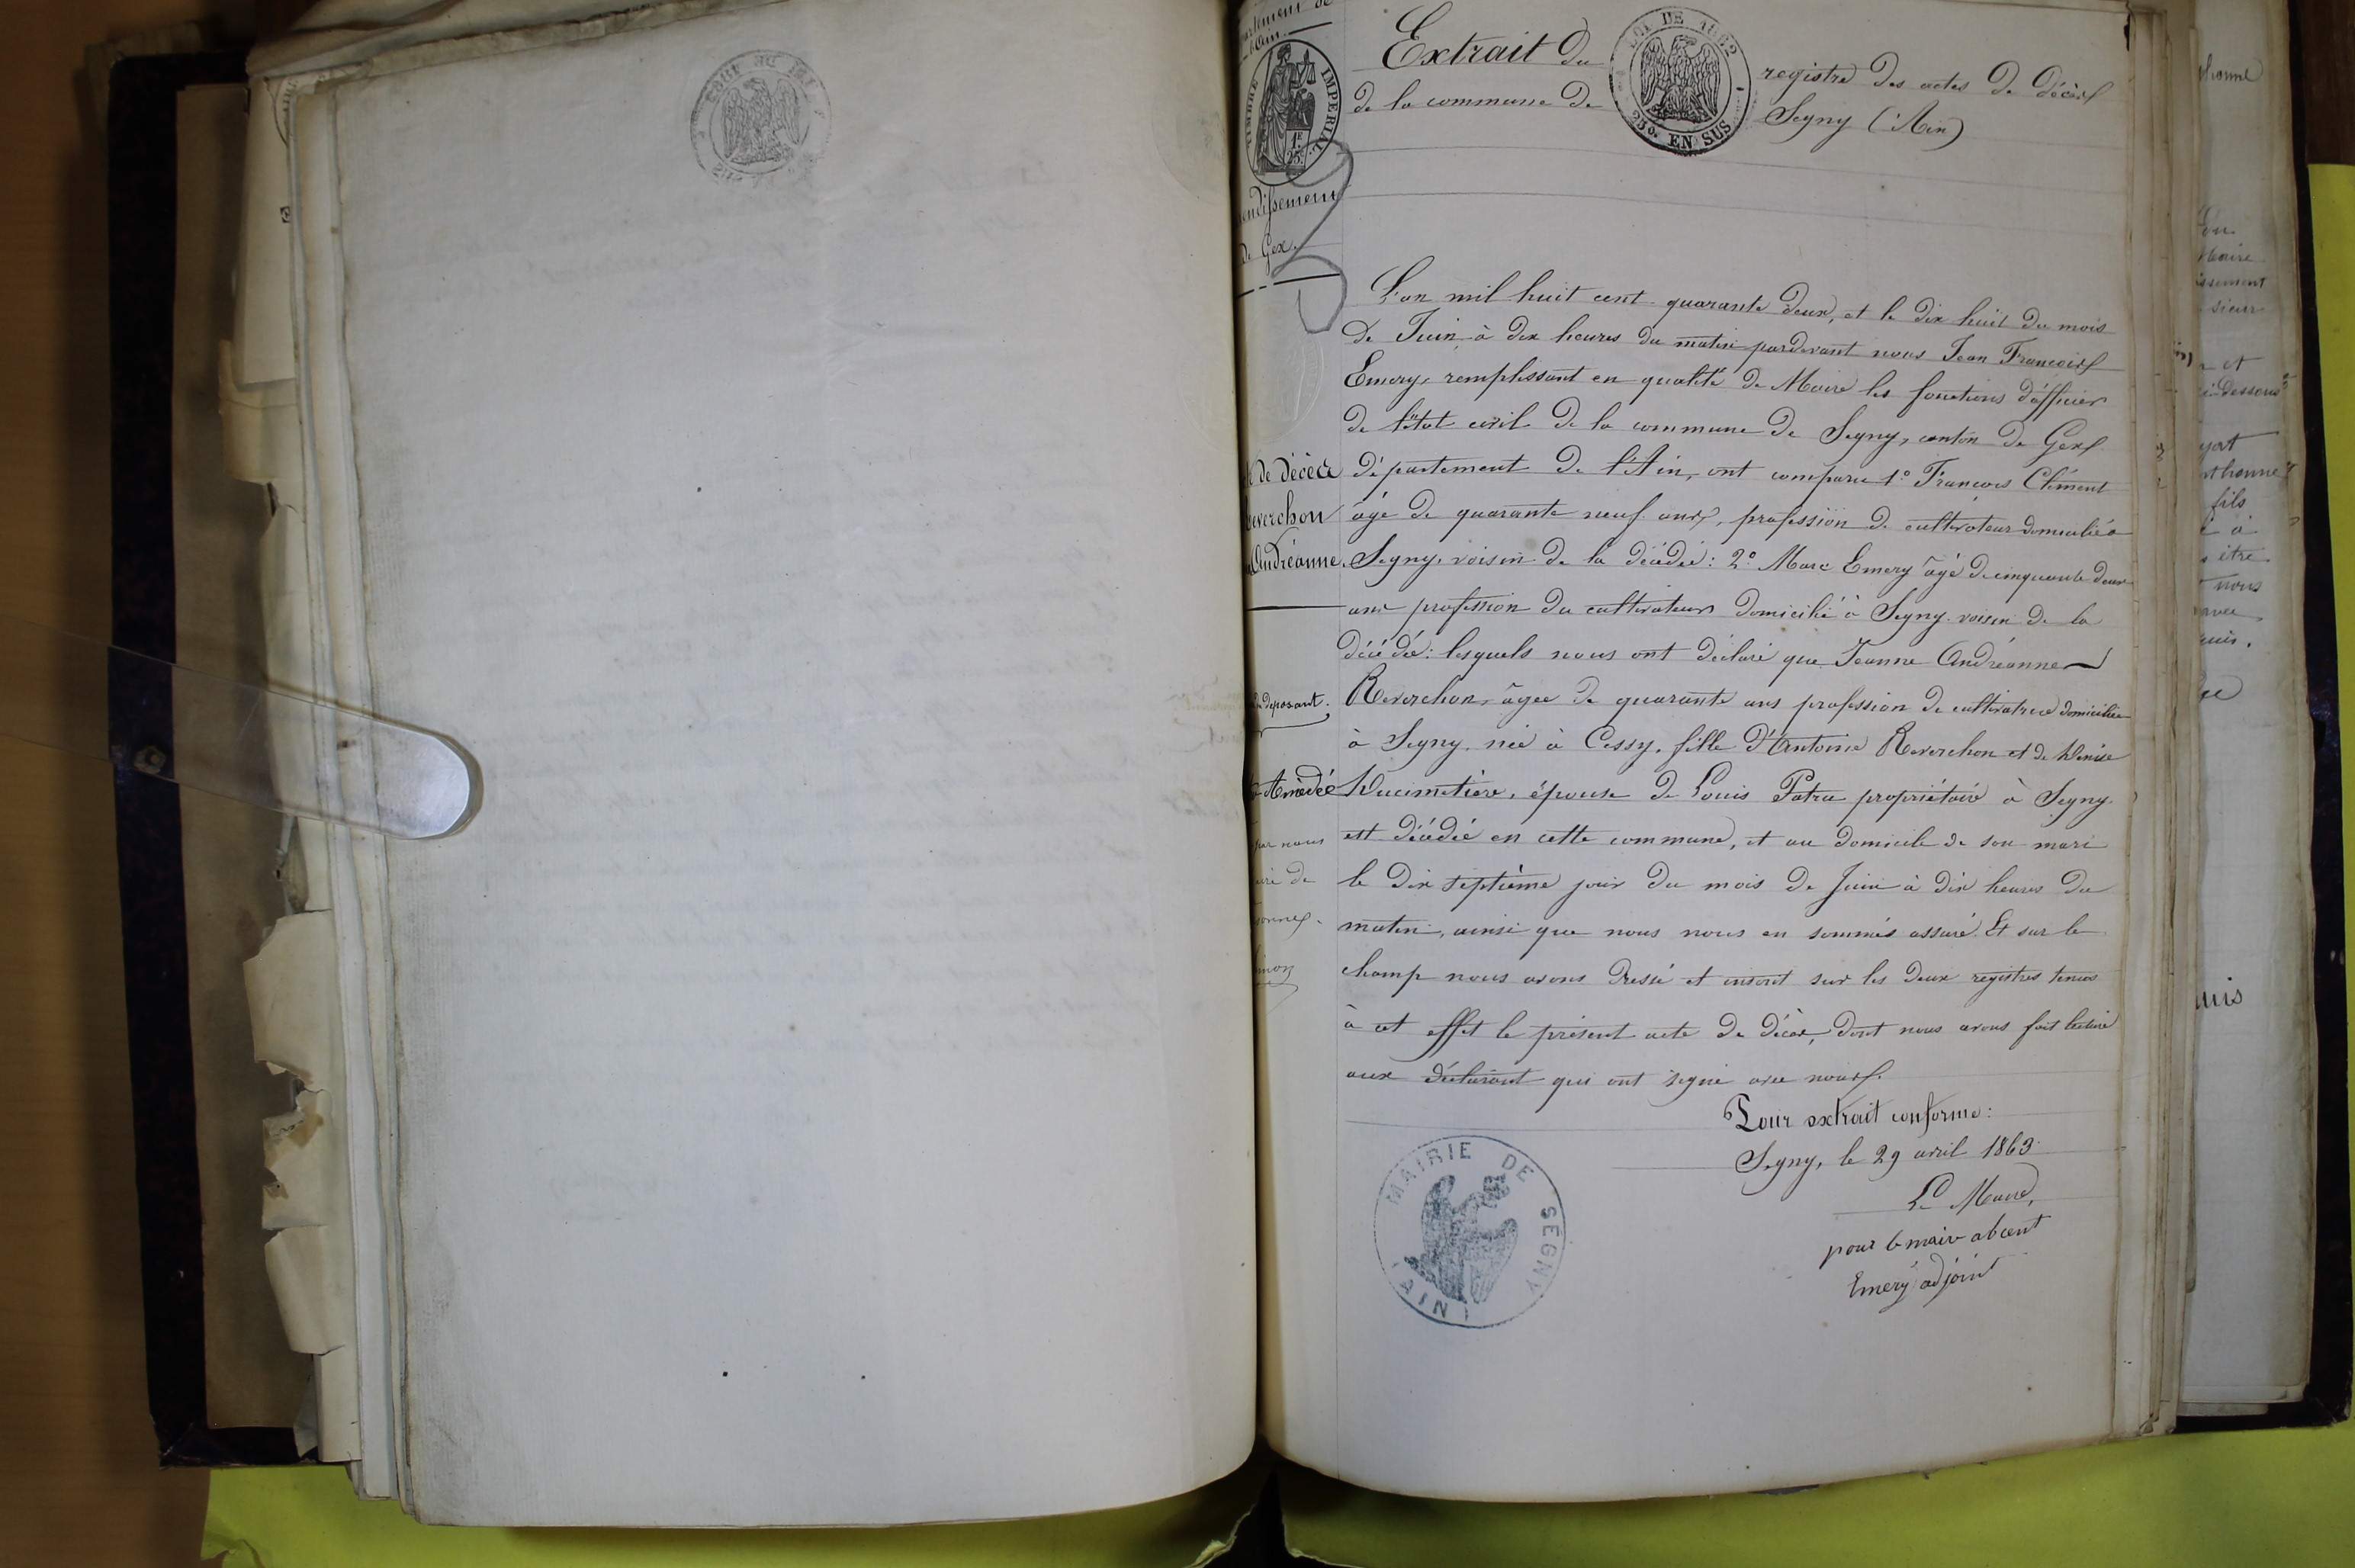 Extrait du registre des actes de décès
de la commune de Segny (Ain)
TIMBRE IMPERIAL
1F
25c
LOI DE 1862
25c. EN SUS
de Gex.
L'an mil huit cent quarante deux, et le dix huit du mois
de Juin, à dix heures du matin pardevant nous Jean François
Emery, remplissant en qualité de Maire les fonctions d'officier
de l'état civil de la commune de Segny, canton de Gex
département de l'Ain, ont comparu 1° François Clément
âgé de quarante neuf ans, profession de cultivateur domicilié à
Segny, voisin de la décédée: 2° Marc Emery âgé de cinquante deux
ans profession du cultivateur domicilié à Segny voisin de la
décédée: lesquels nous ont déclaré que Jeanne Andréanne
Reverchon, âgée de quarante ans profession de cultivatrice domiciliée
à Segny, née à Cessy, fille d'Antoine Reverchon et de Denise
Ducimetière, épouse de Louis Patru propriétaire à Segny
est décédée en cette commune, et au domicile de son mari
le dix septième jour du mois de Juin à dix heures du
matin, ainsi que nous nous en sommes assuré. Et sur le
champ nous avons dressé et inscrit sur les deux registres tenus
à cet effet le présent acte de décès, dont nous avons fait lecture
aux déclarant qui ont signé avec nous.
Pour extrait conforme:
Segny, le 29 avril 1863
Le Maire,
pour le maire absent
Emery adjoint
MAIRIE DE SEGNY
(AIN)
de décès
Reverchon
Andréanne.
déposant.
Amédée
par nous